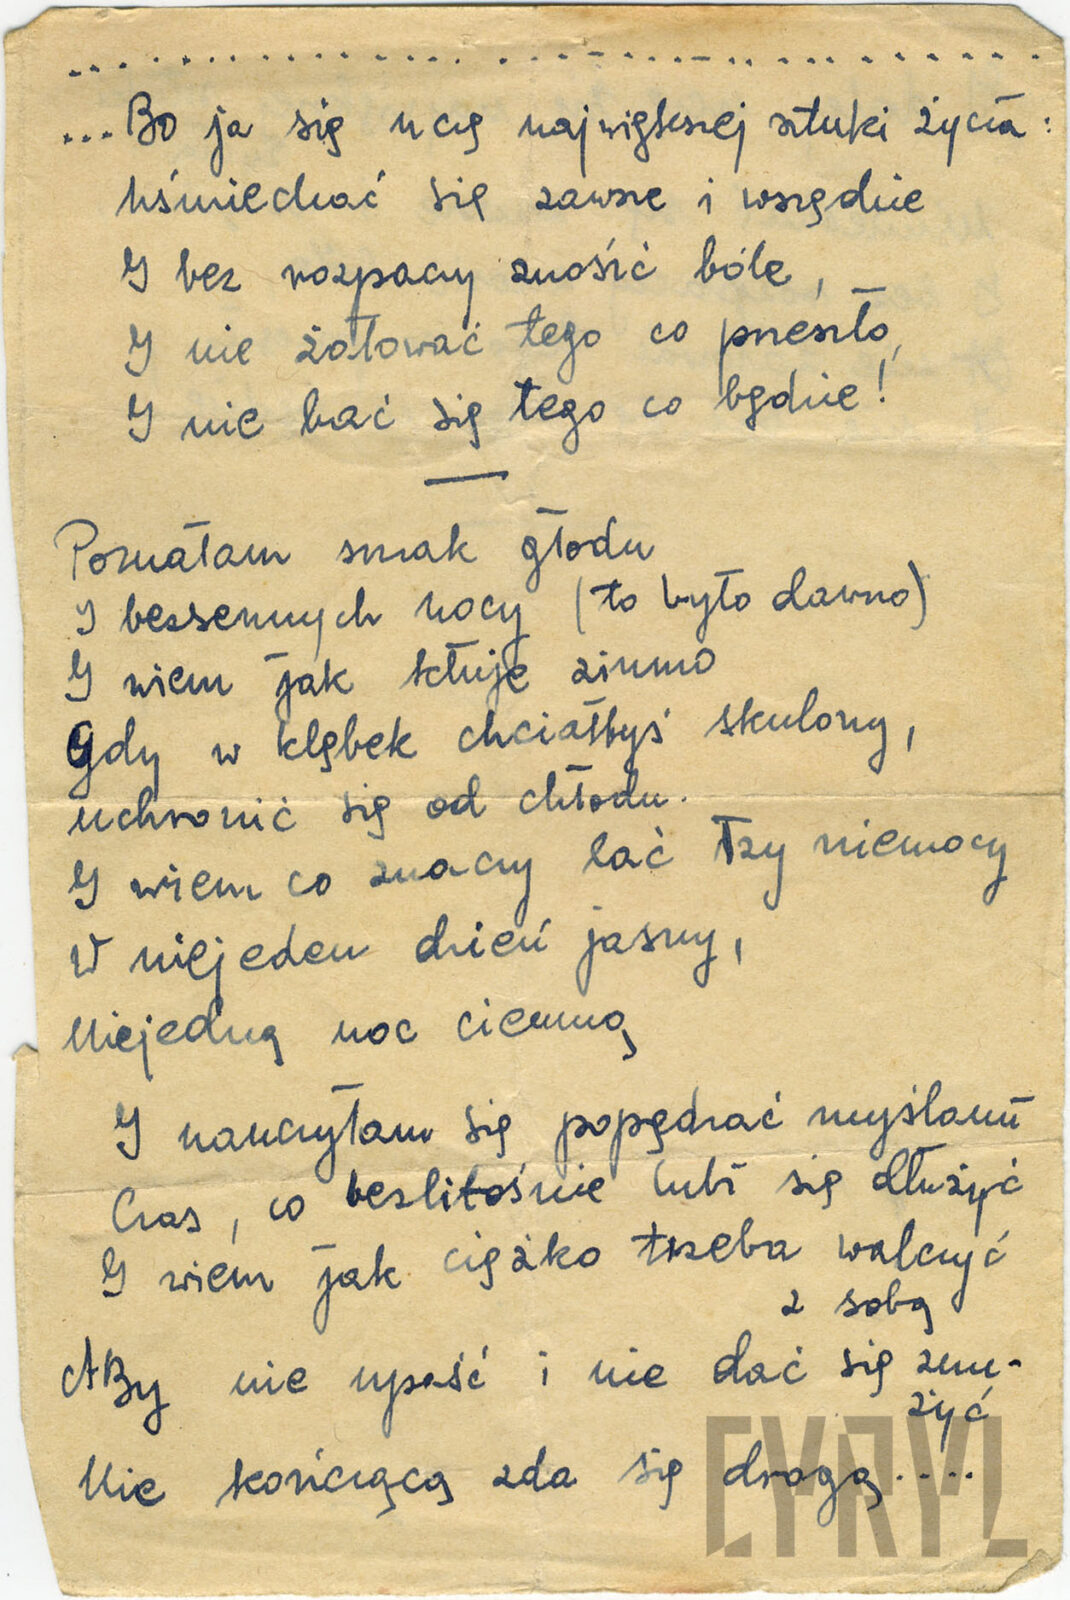 ...Bo ja się uczę największej sztuki życia:
Uśmiechać się zawsze i wszędzie
I bez rozpaczy znosić bóle,
I nie żałować tego co przeszło,
I nie bać się tego co będzie!
Poznałam smak głodu
I bezsennych nocy (to było dawno)
I wiem jak kłuje zimno
Gdy w kłębek chciałbyś skulony,
uchronić się od chłodu.
I wiem co znaczy lać łzy niemocy
W niejeden dzień jasny,
Niejedną noc ciemną
I nauczyłam się popędzać myślami
Czas, co bezlitośnie lubi się dłużyć
I wiem jak ciężko trzeba walczyć
z sobą
ABy nie upaść i nie dać się znu-
żyć
Nie kończącą zda się drogą....
CYRYL